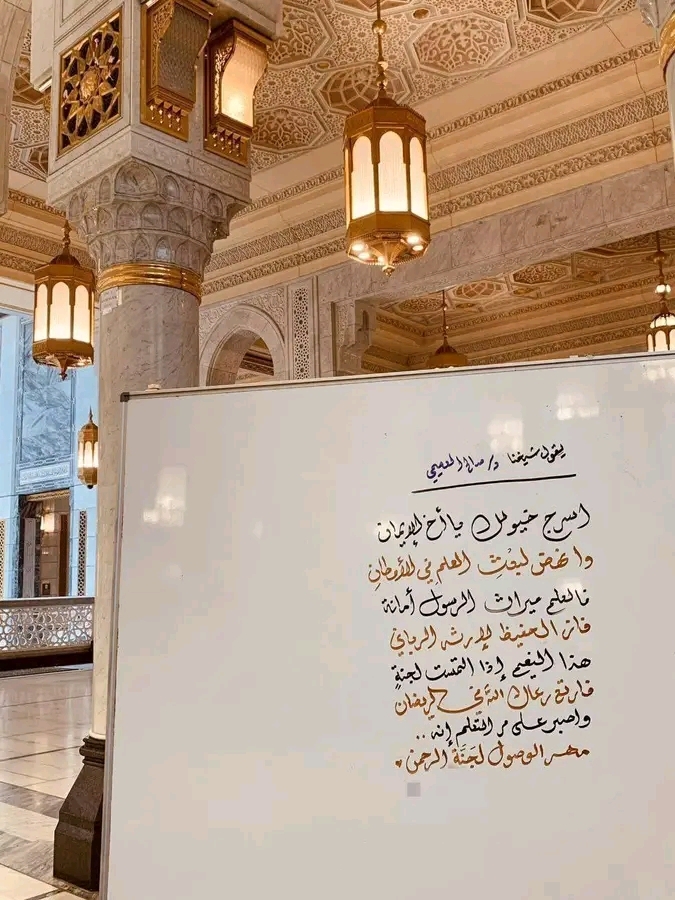 يقول شيخنا د/ صالح العصيمي
اسرج خيولك يا أخ الإيمان
وانهض لبعث العلم في الأوطان
فالعلم ميراث الرسول أمانة
فاز الحفيظ لإرثه الرباني
هذا النعيم إذا التمست لجنةٍ
فارتع رعاك الله في الريضان
واصبر على مر التعلم إنه ..
مهر الوصول لجَنَة الرحمن